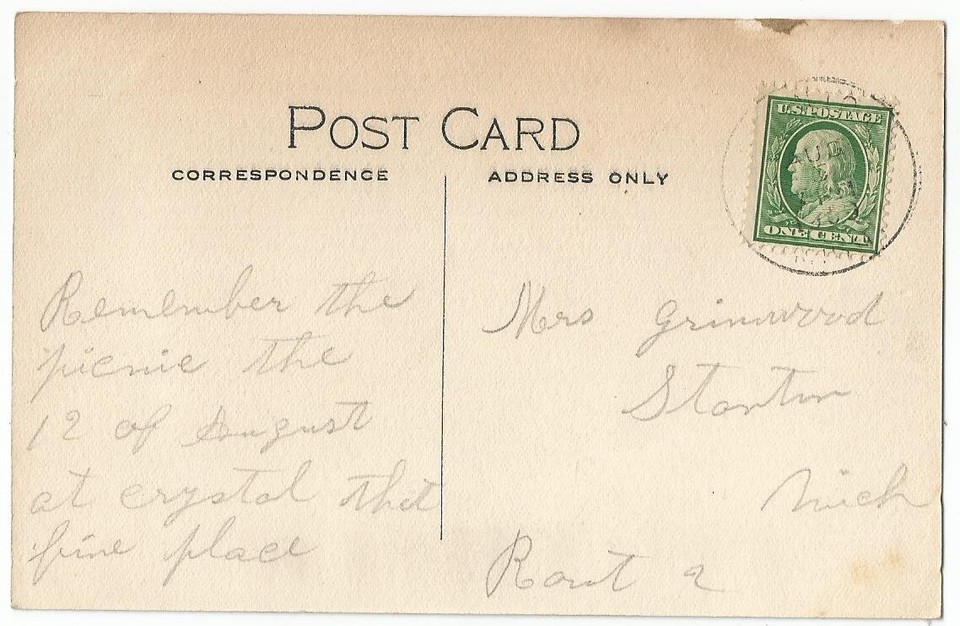 POST CARD
CORRESPONDENCE
ADDRESS ONLY
U.S. POSTAGE
ONE CENT
Remember the
picnic the
12 of August
at crystal that
fine place
Mrs Grinwood
Stanton
Mich
Rout 2